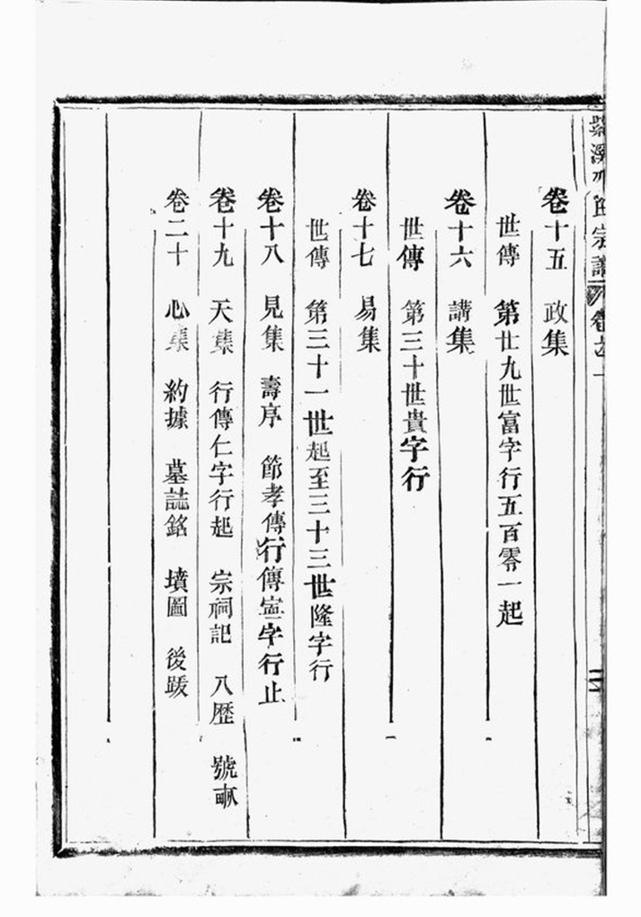 卷十五　政集
世傳　第廿九世富字行五百零一起
卷十六　講集
世傳　第三十世貴字行
卷十七　易集
世傳　第三十一世起至三十三世隆字行
卷十八　見集　壽序　節孝傳行傳寧字行止
卷十九　天集　行傳仁字行起　宗祠記　八歷　號畝
卷二十　心集　約據　墓誌銘　墳圖　後跋
宗譜